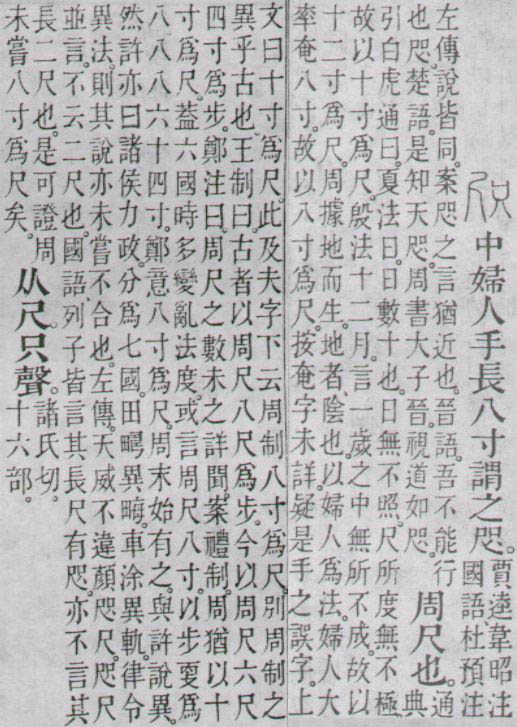 中婦人手長八寸謂之咫。賈逵韋昭注
國語、杜預注
左傳說皆同。案咫之言猶近也。晉語。吾不能行
也咫。楚語。是知天咫。周書大子晉。視道如咫。
周尺也。通
典
引白虎通曰。夏法曰。日數十也。日無不照。尺所度無不極
故以十寸爲尺。殷法十二月。言一歲之中無所不成。故以
十二寸爲尺。周據地而生。地者、陰也。以婦人爲法。婦人大
率奄八寸。故以八寸爲尺。按奄字未詳。疑是手之誤字。上
文曰十寸爲尺。此及夫字下云周制八寸爲尺。別周制之
異乎古也。王制曰。古者以周尺八尺爲步。今以周尺六尺
四寸爲步。鄭注曰。周尺之數未之詳聞。案禮制。周猶以十
寸爲尺。葢六國時多變亂法度。或言周尺八寸。以步㪅爲
八八八六十四寸。鄭意八寸爲尺。周末始有之。與許說異。
然許亦曰諸侯力政。分爲七國。田異晦。車涂異軌。律令
異法。則其說亦未嘗不合也。左傳。天威不違顏咫尺。咫尺
並言。不云二尺也。國語、列子皆言其長尺有咫。亦不言其
長二尺也。是可證周
未嘗八寸爲尺矣。
从尺只聲。諸氏切。
十六部。